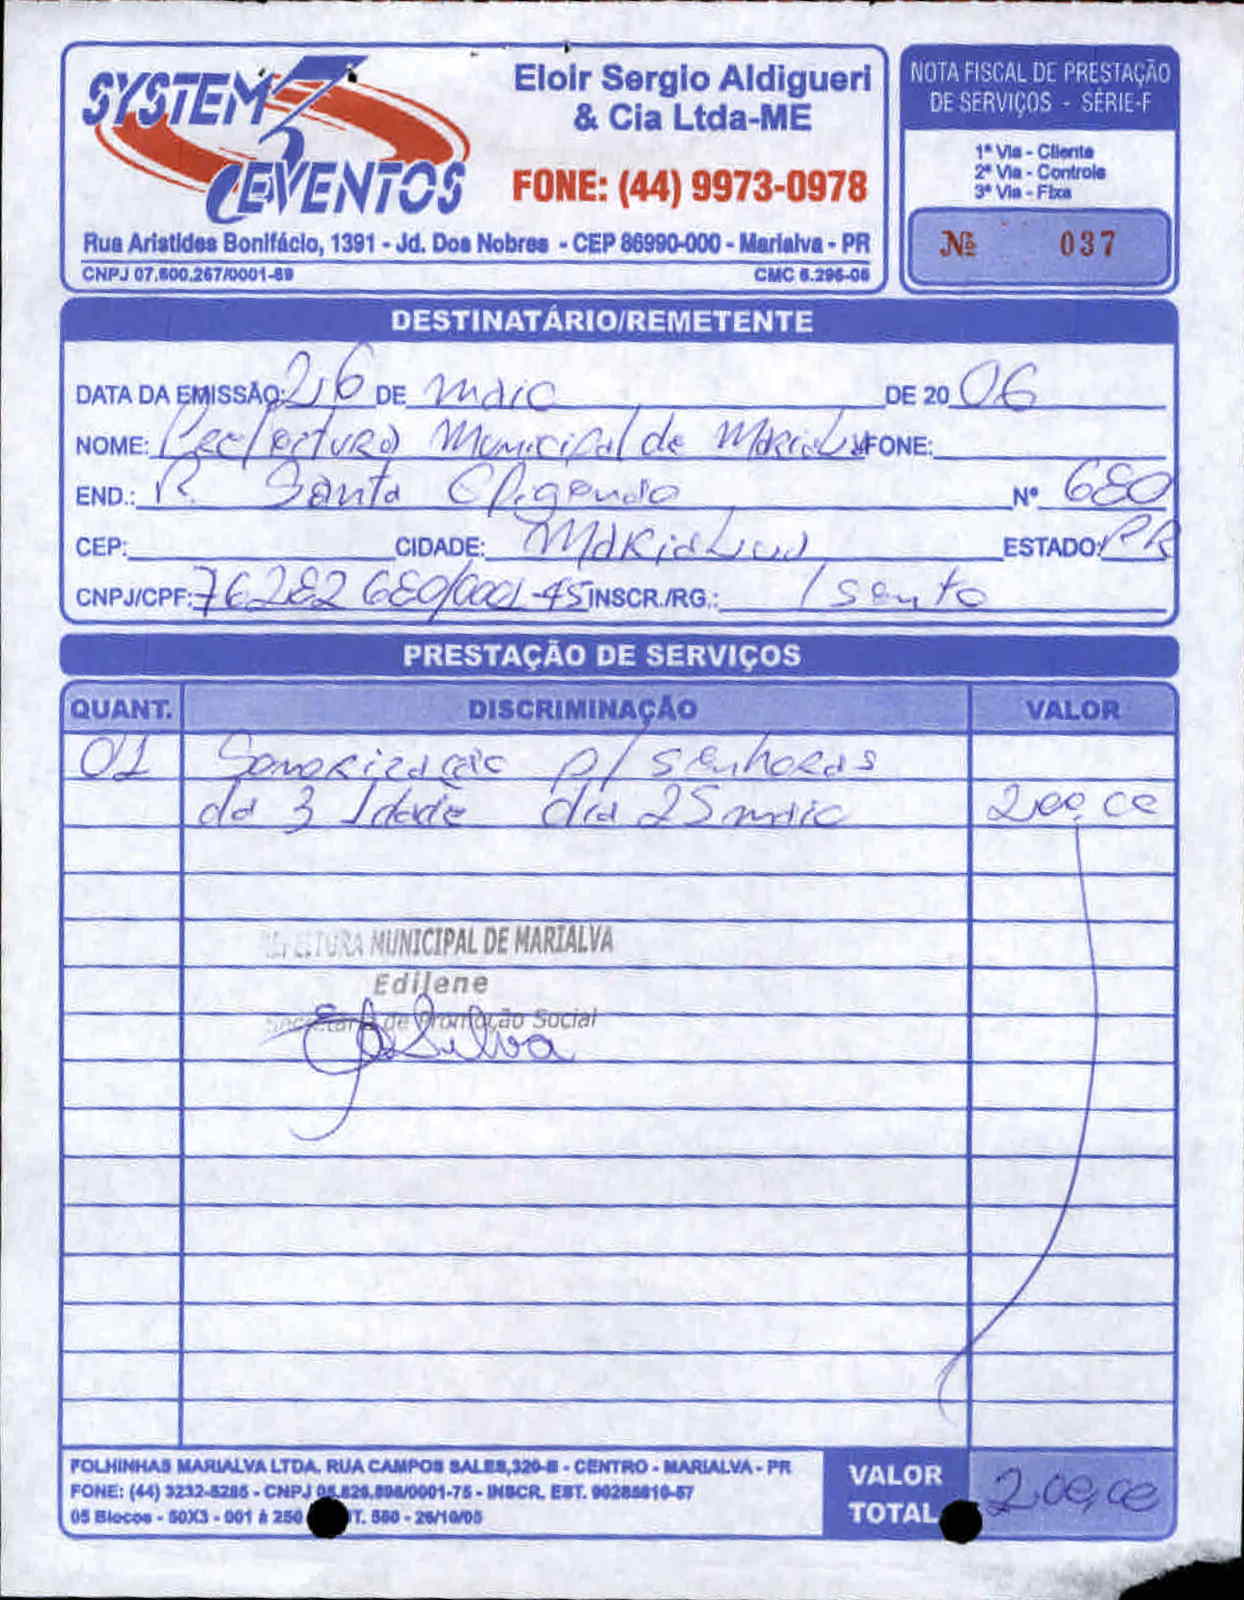 SYSTEM 3 EVENTOS
Eloir Sergio Aldigueri
& Cia Ltda-ME
FONE: (44) 9973-0978
Rua Aristides Bonifácio, 1391 - Jd. Dos Nobres - CEP 86990-000 - Marialva - PR
CNPJ 07.600.267/0001-89 CMC 6.296-06
NOTA FISCAL DE PRESTAÇÃO
DE SERVIÇOS - SÉRIE-F
1ª Via - Cliente
2ª Via - Controle
3ª Via - Fixa
Nº 037
DESTINATÁRIO/REMETENTE
DATA DA EMISSÃO: 26 DE maio DE 20 06
NOME: Prefeitura Municipal de Marialva FONE:
END.: R. Santa Efigenia Nº 680
CEP: CIDADE: Marialva ESTADO: PR
CNPJ/CPF: 76282680/0001-45 INSCR./RG.: Isento
PRESTAÇÃO DE SERVIÇOS
QUANT. DISCRIMINAÇÃO VALOR
01 Sonorização p/ senhoras
da 3 Idade dia 25 maio 200,00
PREFEITURA MUNICIPAL DE MARIALVA
Edilene
Secretaria de Promoção Social
Silva
FOLHINHAS MARIALVA LTDA. RUA CAMPOS SALES, 320-B - CENTRO - MARIALVA - PR
FONE: (44) 3232-5285 - CNPJ 0 /0001-75 - INSCR. EST. 90285810-57
05 Blocos - 50X3 - 001 à 250 T. 580 - 26/10/05
VALOR
TOTAL 200,00